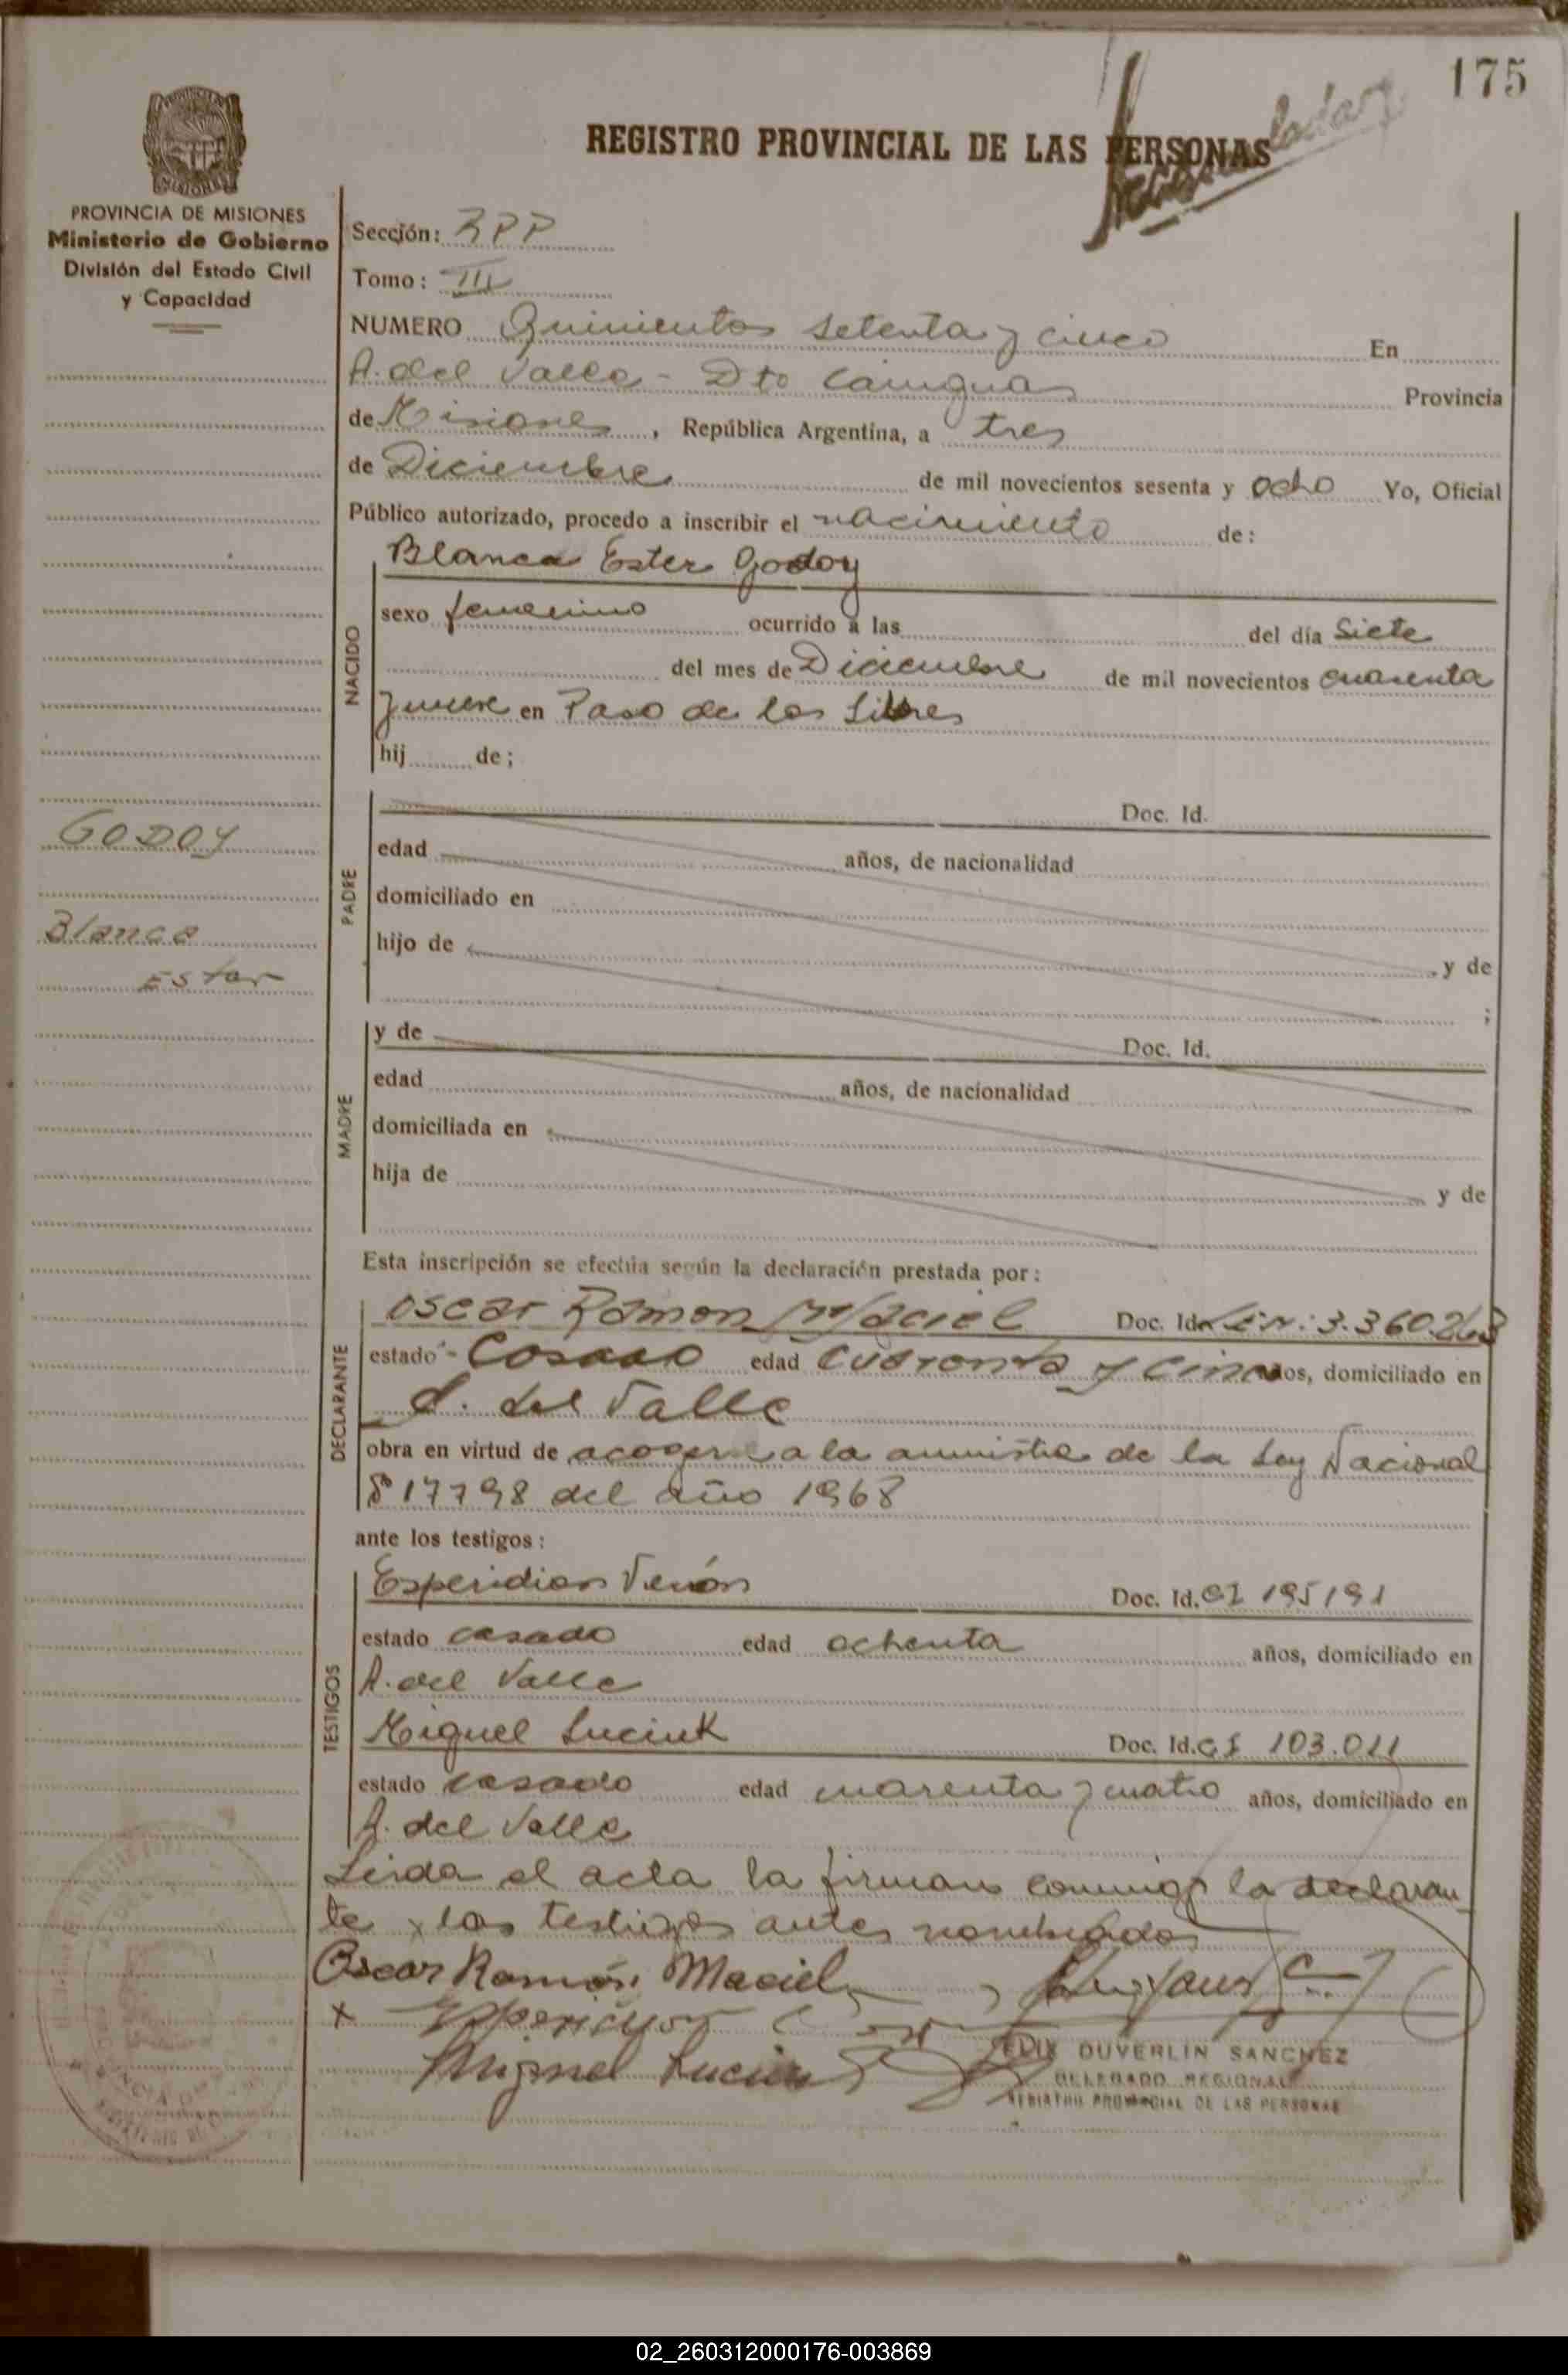 175
REGISTRO PROVINCIAL DE LAS PERSONAS
MISIONES
PROVINCIA DE MISIONES
Ministerio de Gobierno
División del Estado Civil
y Capacidad
Sección: RPP
Tomo: III
NUMERO Quinientos setenta y cinco En
A. del Valle - Dto Cainguas Provincia
de Misiones, República Argentina, a tres
de Diciembre de mil novecientos sesenta y ocho Yo, Oficial
Público autorizado, procedo a inscribir el nacimiento de:
NACIDO
Blanca Ester Godoy
sexo femenino ocurrido a las del día Siete
del mes de Diciembre de mil novecientos cuarenta
y nueve en Paso de los Libres
hij de;
GODOY
Blanca
Ester
PADRE
Doc. Id.
edad años, de nacionalidad
domiciliado en
hijo de y de
;
MADRE
y de Doc. Id.
edad años, de nacionalidad
domiciliada en
hija de y de
Esta inscripción se efectúa según la declaración prestada por:
DECLARANTE
Oscar Ramon Maciel Doc. Id. 3.360.263
estado Casado edad Cuarenta y Cinco años, domiciliado en
A. del Valle
obra en virtud de acogerse a la amnistia de la Ley Nacional
17798 del año 1968
ante los testigos:
TESTIGOS
Esperidion Verón Doc. Id. CI 195191
estado casado edad ochenta años, domiciliado en
A. del Valle
Miguel Luciuk Doc. Id. CI 103.011
estado casado edad cuarenta y cuatro años, domiciliado en
A. del Valle
Leida el acta la firman conmigo la declaran
te y los testigos antes nombrados
Oscar Ramón Maciel
Miguel Luciuk
FELIX DUVERLIN SANCHEZ
DELEGADO REGIONAL
REGISTRO PROVINCIAL DE LAS PERSONAS
02_260312000176-003869